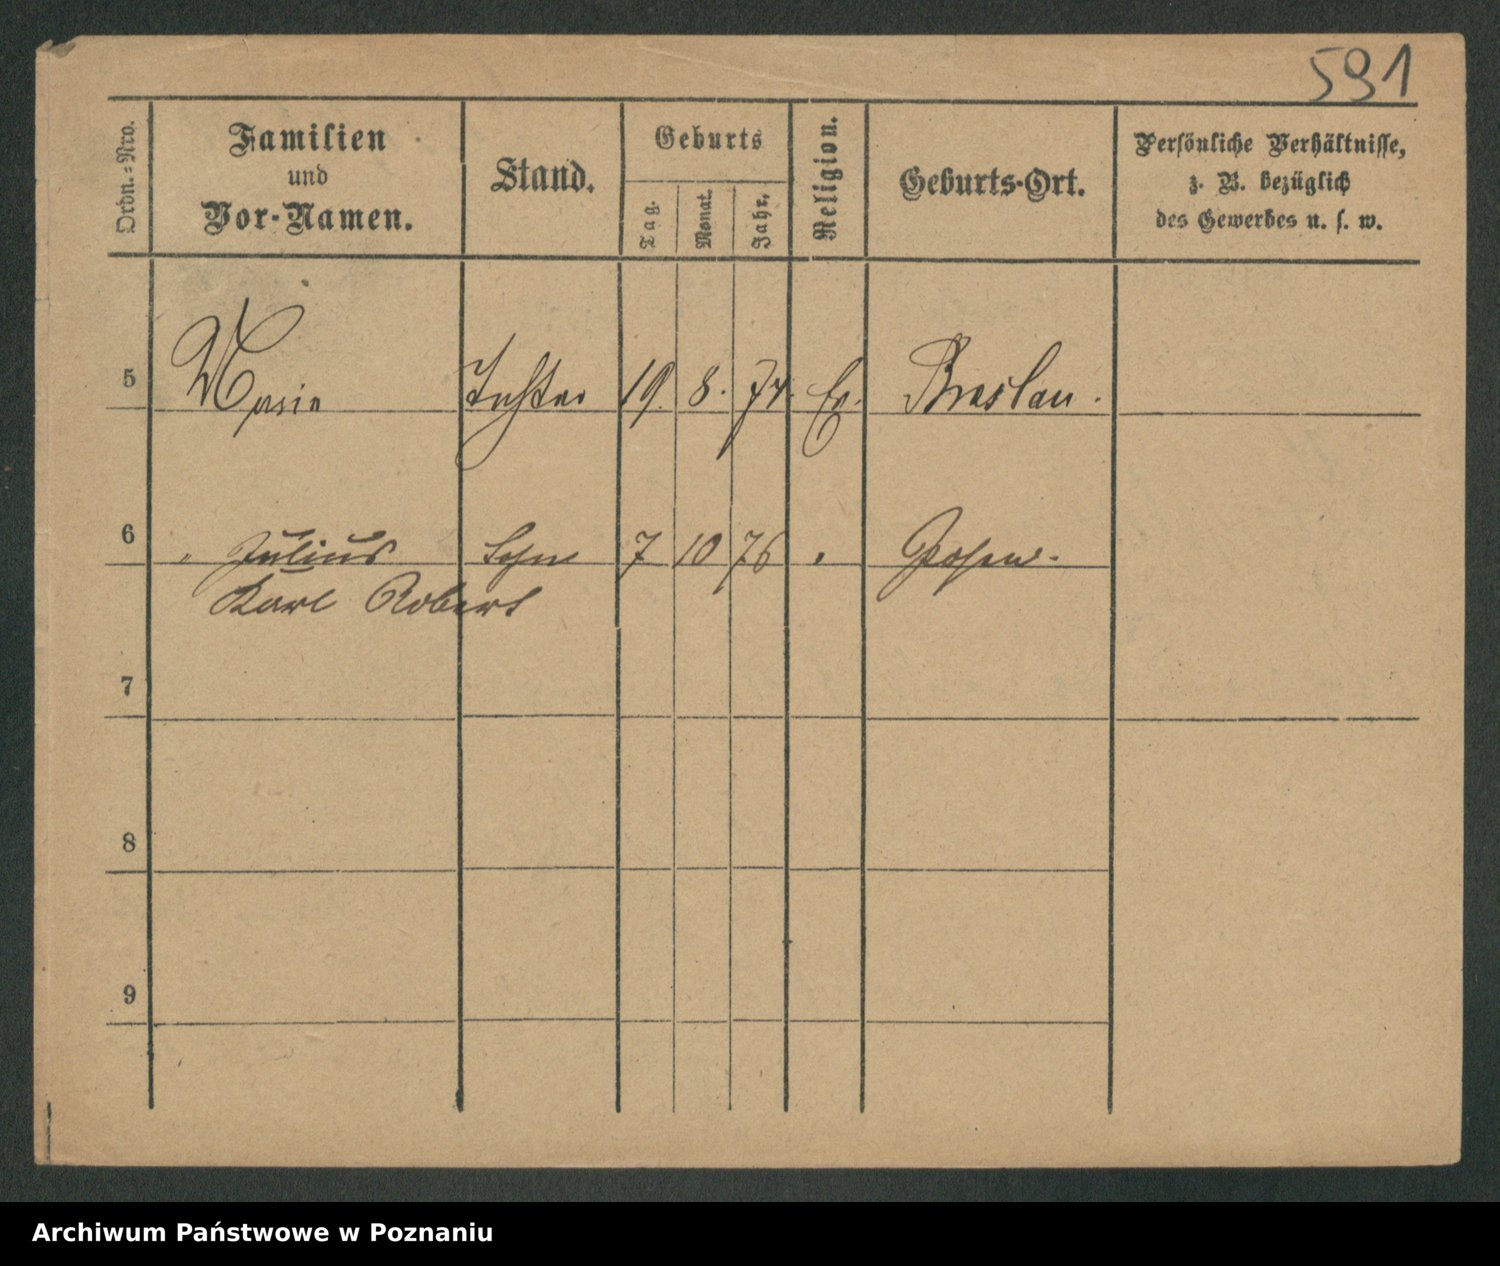 591
Ordn.-Nro.
Familien
und
Vor-Namen.
Stand.
Geburts
Tag.
Monat.
Jahr.
Religion.
Geburts-Ort.
Persönliche Verhältnisse,
z. B. bezüglich
des Gewerbes u. s. w.
5 Marie Tochter 19. 8. 74. Ev. Breslau.
6 " Julius Sohn 7 10 76 " Posen.
Karl Robert
7
8
9
Archiwum Państwowe w Poznaniu